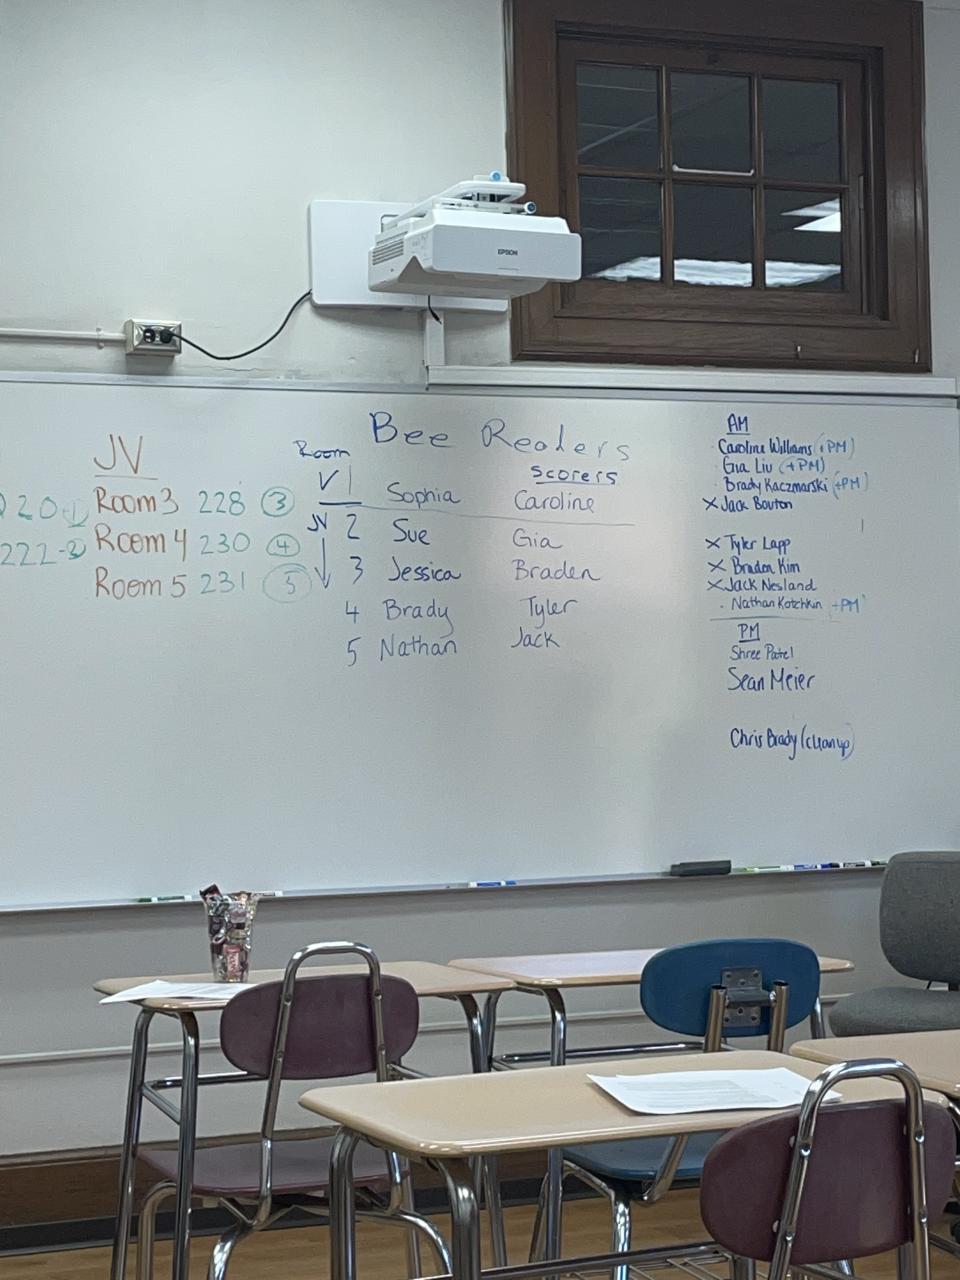 EPSON
JV
220-1 Room 3 228 3
222-2 Room 4 230 4
Room 5 231 5
Bee Readers
Room scorers
V 1 Sophia Caroline
JV 2 Sue Gia
3 Jessica Braden
4 Brady Tyler
5 Nathan Jack
AM
Caroline Williams (+PM)
Gia Liu (+PM)
Brady Kaczmarski (+PM)
X Jack Bouton
X Tyler Lapp
X Braden Kim
X Jack Nesland
Nathan Kotchkin +PM
PM
Shree Patel
Sean Meier
Chris Brady (cleanup)